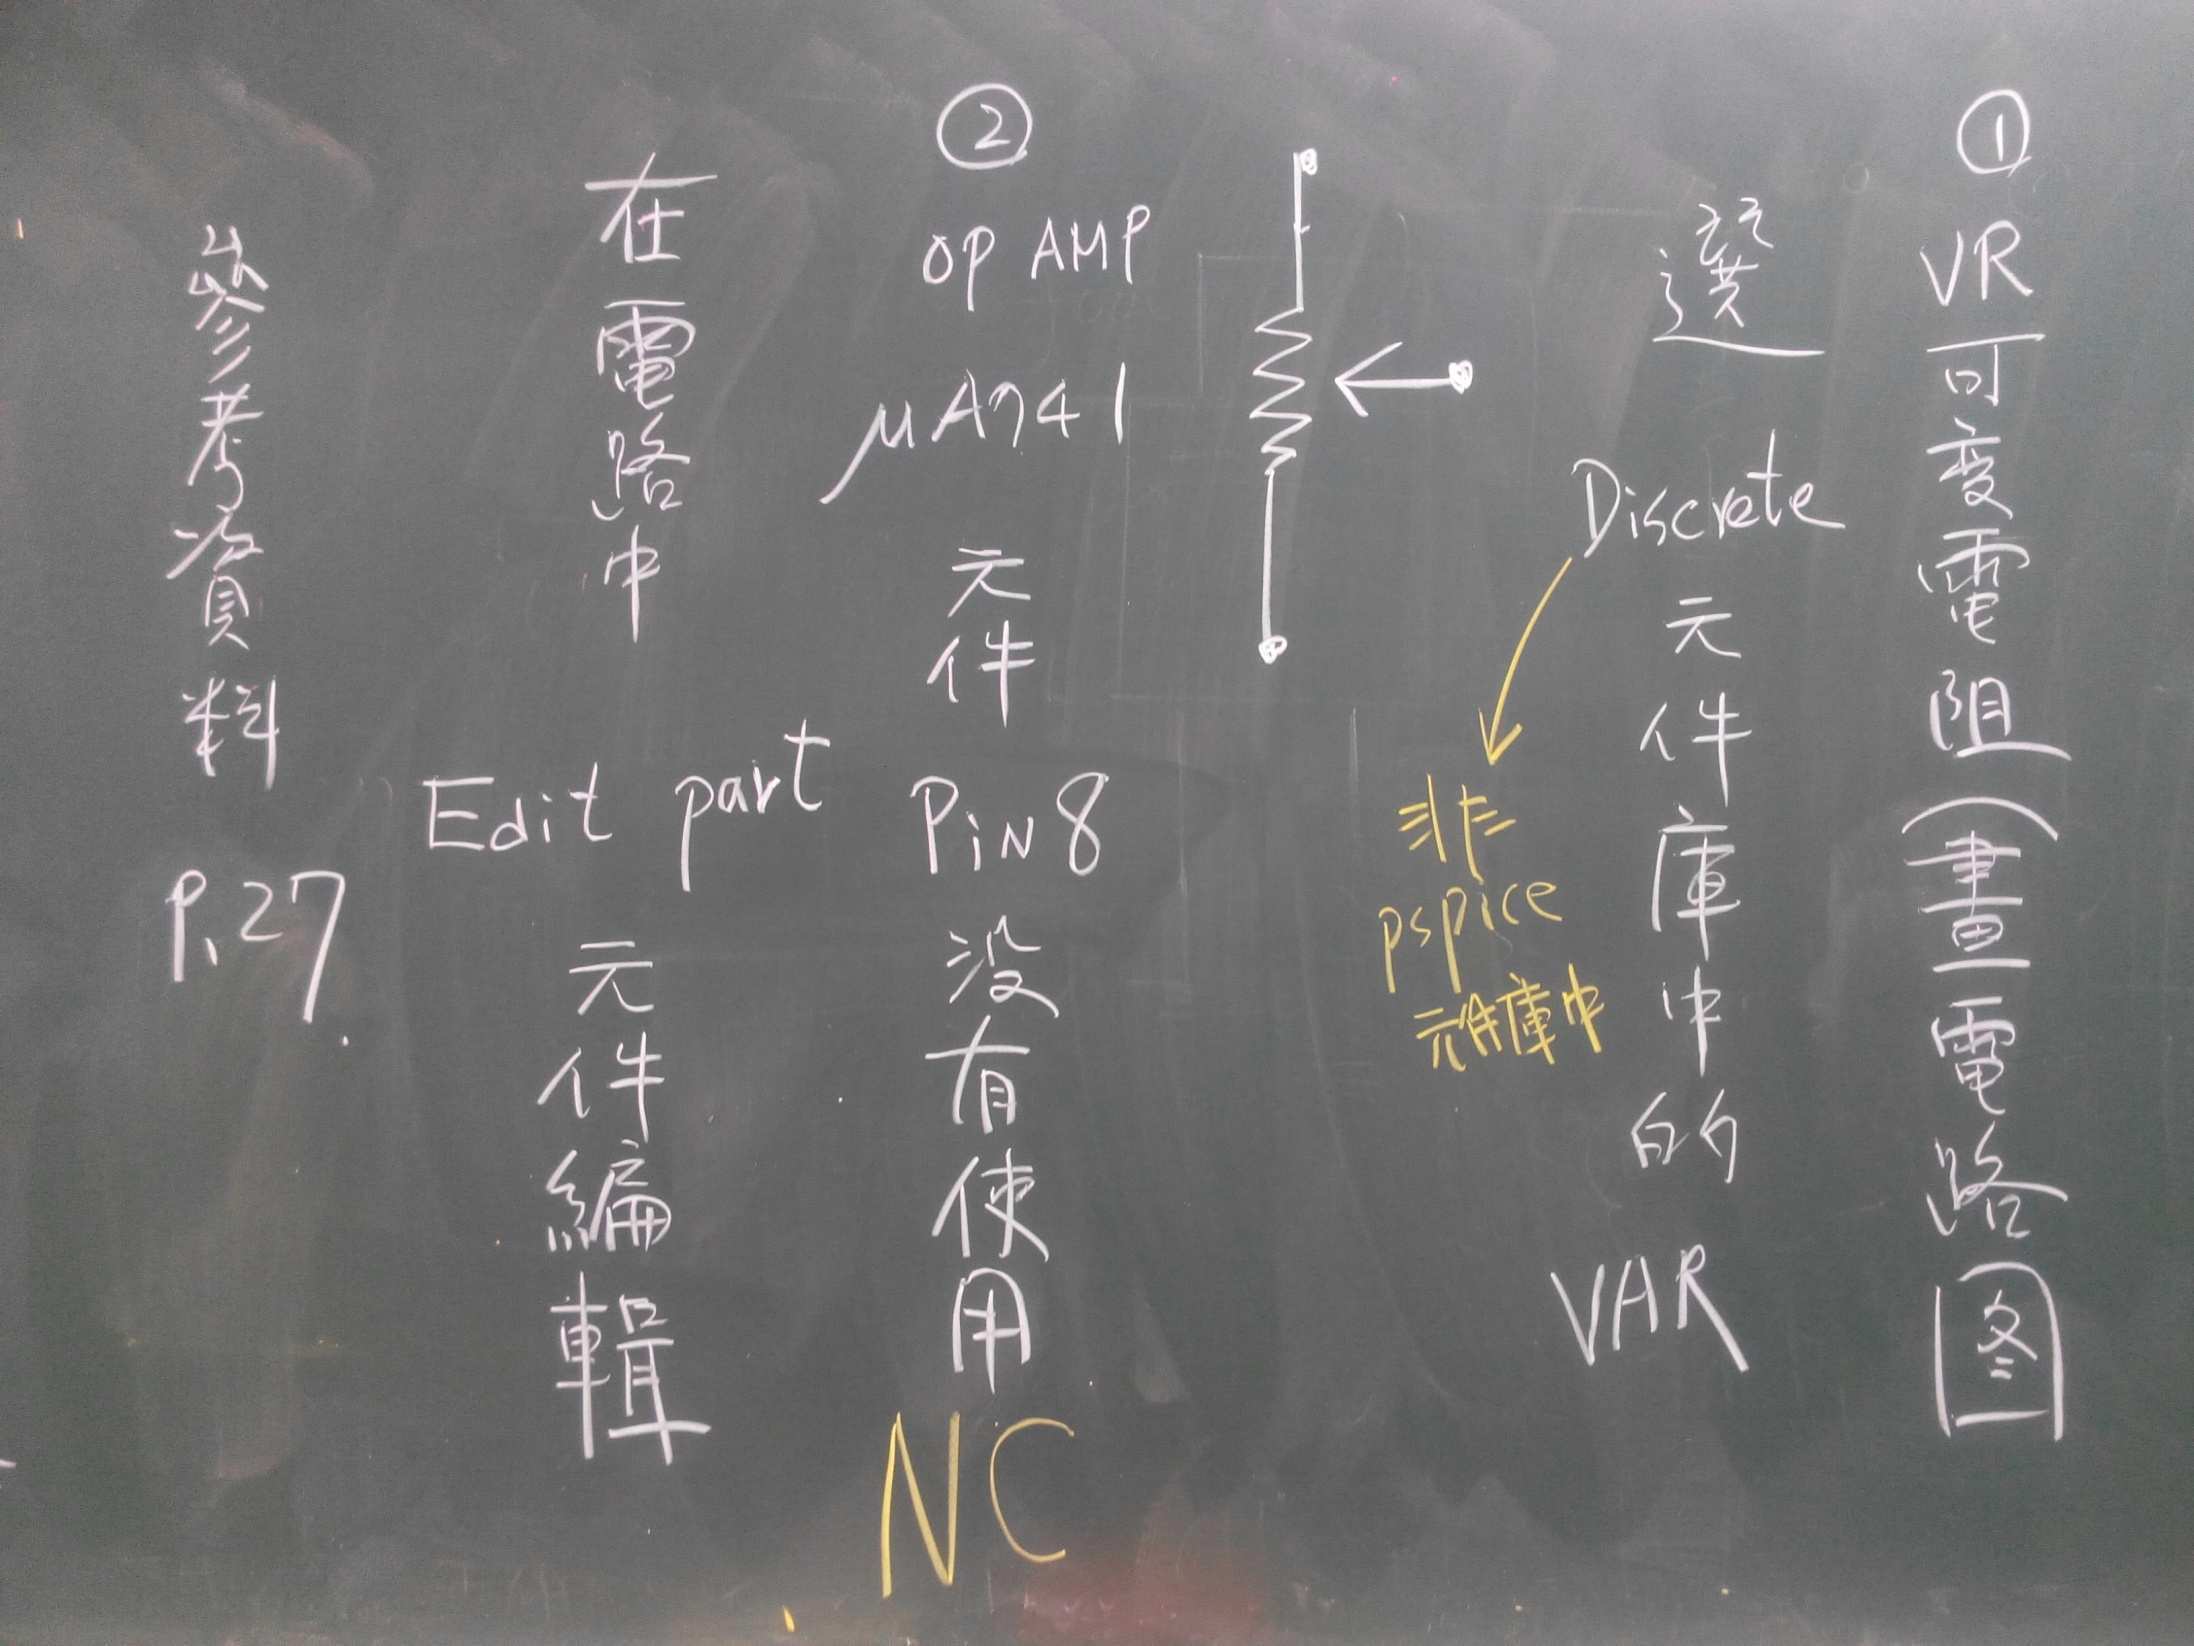 ①
VR可变電阻(畫電路图
選 Discrete 元件庫中的 VAR
非
pspice
元件庫中
②
OP AMP
μA741
元件
PiN8
没有使用
NC
在電路中
Edit part
元件編輯
參考資料 P.27